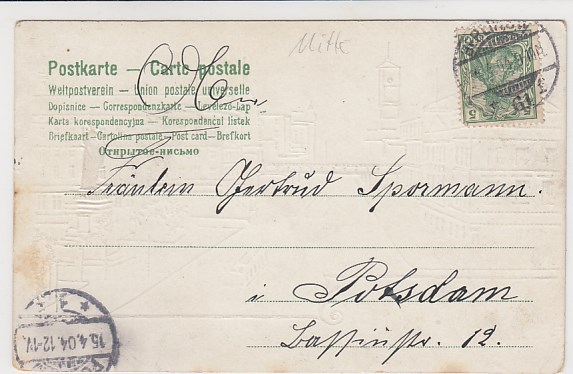 Mitte
Postkarte — Carte postale
Weltpostverein — Union postale universelle
Dopisnice — Correspondenzkarte — Levelezö-Lap
Karta korespondencyjna — Korespondenčni listek
Briefkaart — Cartolina postale — Post card — Brefkort
Открытое-письмо
5 5
Fräulein Gertrud Spormann.
i Potsdam
Bassinstr. 12.
15.4.04.12-1V.